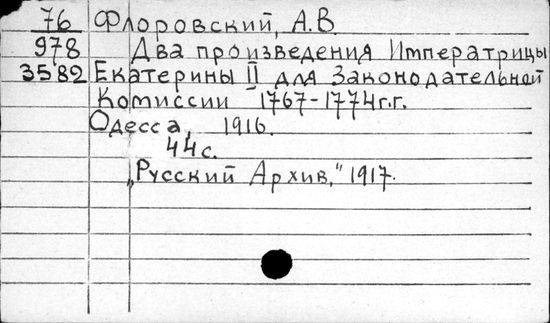 76 Флоровский, А.В
978 Два произведения Императрицы
3582 Екатерины II для Законодательной
Комиссии 1767-1774г.г.
Одесса, 1916.
44 с.
„Русский Архив," 1917.